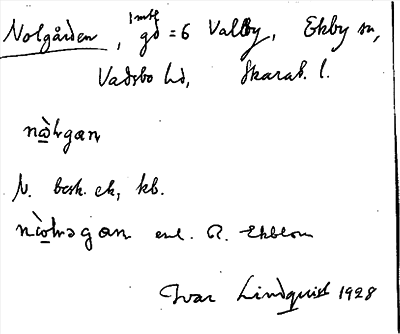 Nolgården, 1 mtl gd = 6 Valby, Ekby sn,
Vadsbo hd, Skarab. l.
nòlgan
N. besk. ek, kb.
enl. R. Ekblom
Ivar Lindquist 1928